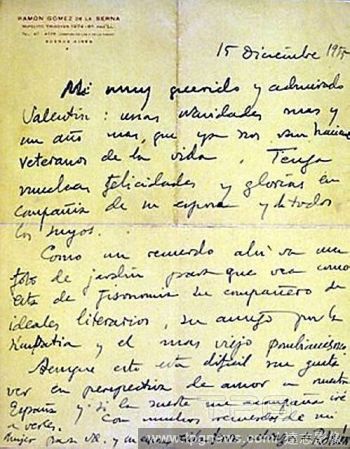 RAMÓN GÓMEZ DE LA SERNA
HIPOLITO YRIGOYEN 1974 - 6º
BUENOS AIRES
15 Diciembre 195
Mi muy querido y admirado
Valentin: unas navidades mas y
un año mas, que ya nos van haciendo
veteranos de la vida. Tenga
muchas felicidades y glorias en
compañia de su esposa y de todos
los suyos.
Como un recuerdo ahi va una
foto de jardin para que vea como
esta de fisonomia su compañero de
ideales literarios, su amigo por la
simpatia y el mas viejo pombiano
Aunque esto esta dificil me gusta
ver en perspectiva de amor a nuestra
España y si la suerte me acompaña iré
a verles.
Con muchos recuerdos de mi
mujer para Vd. y un abrazo
www.tpgnews.com